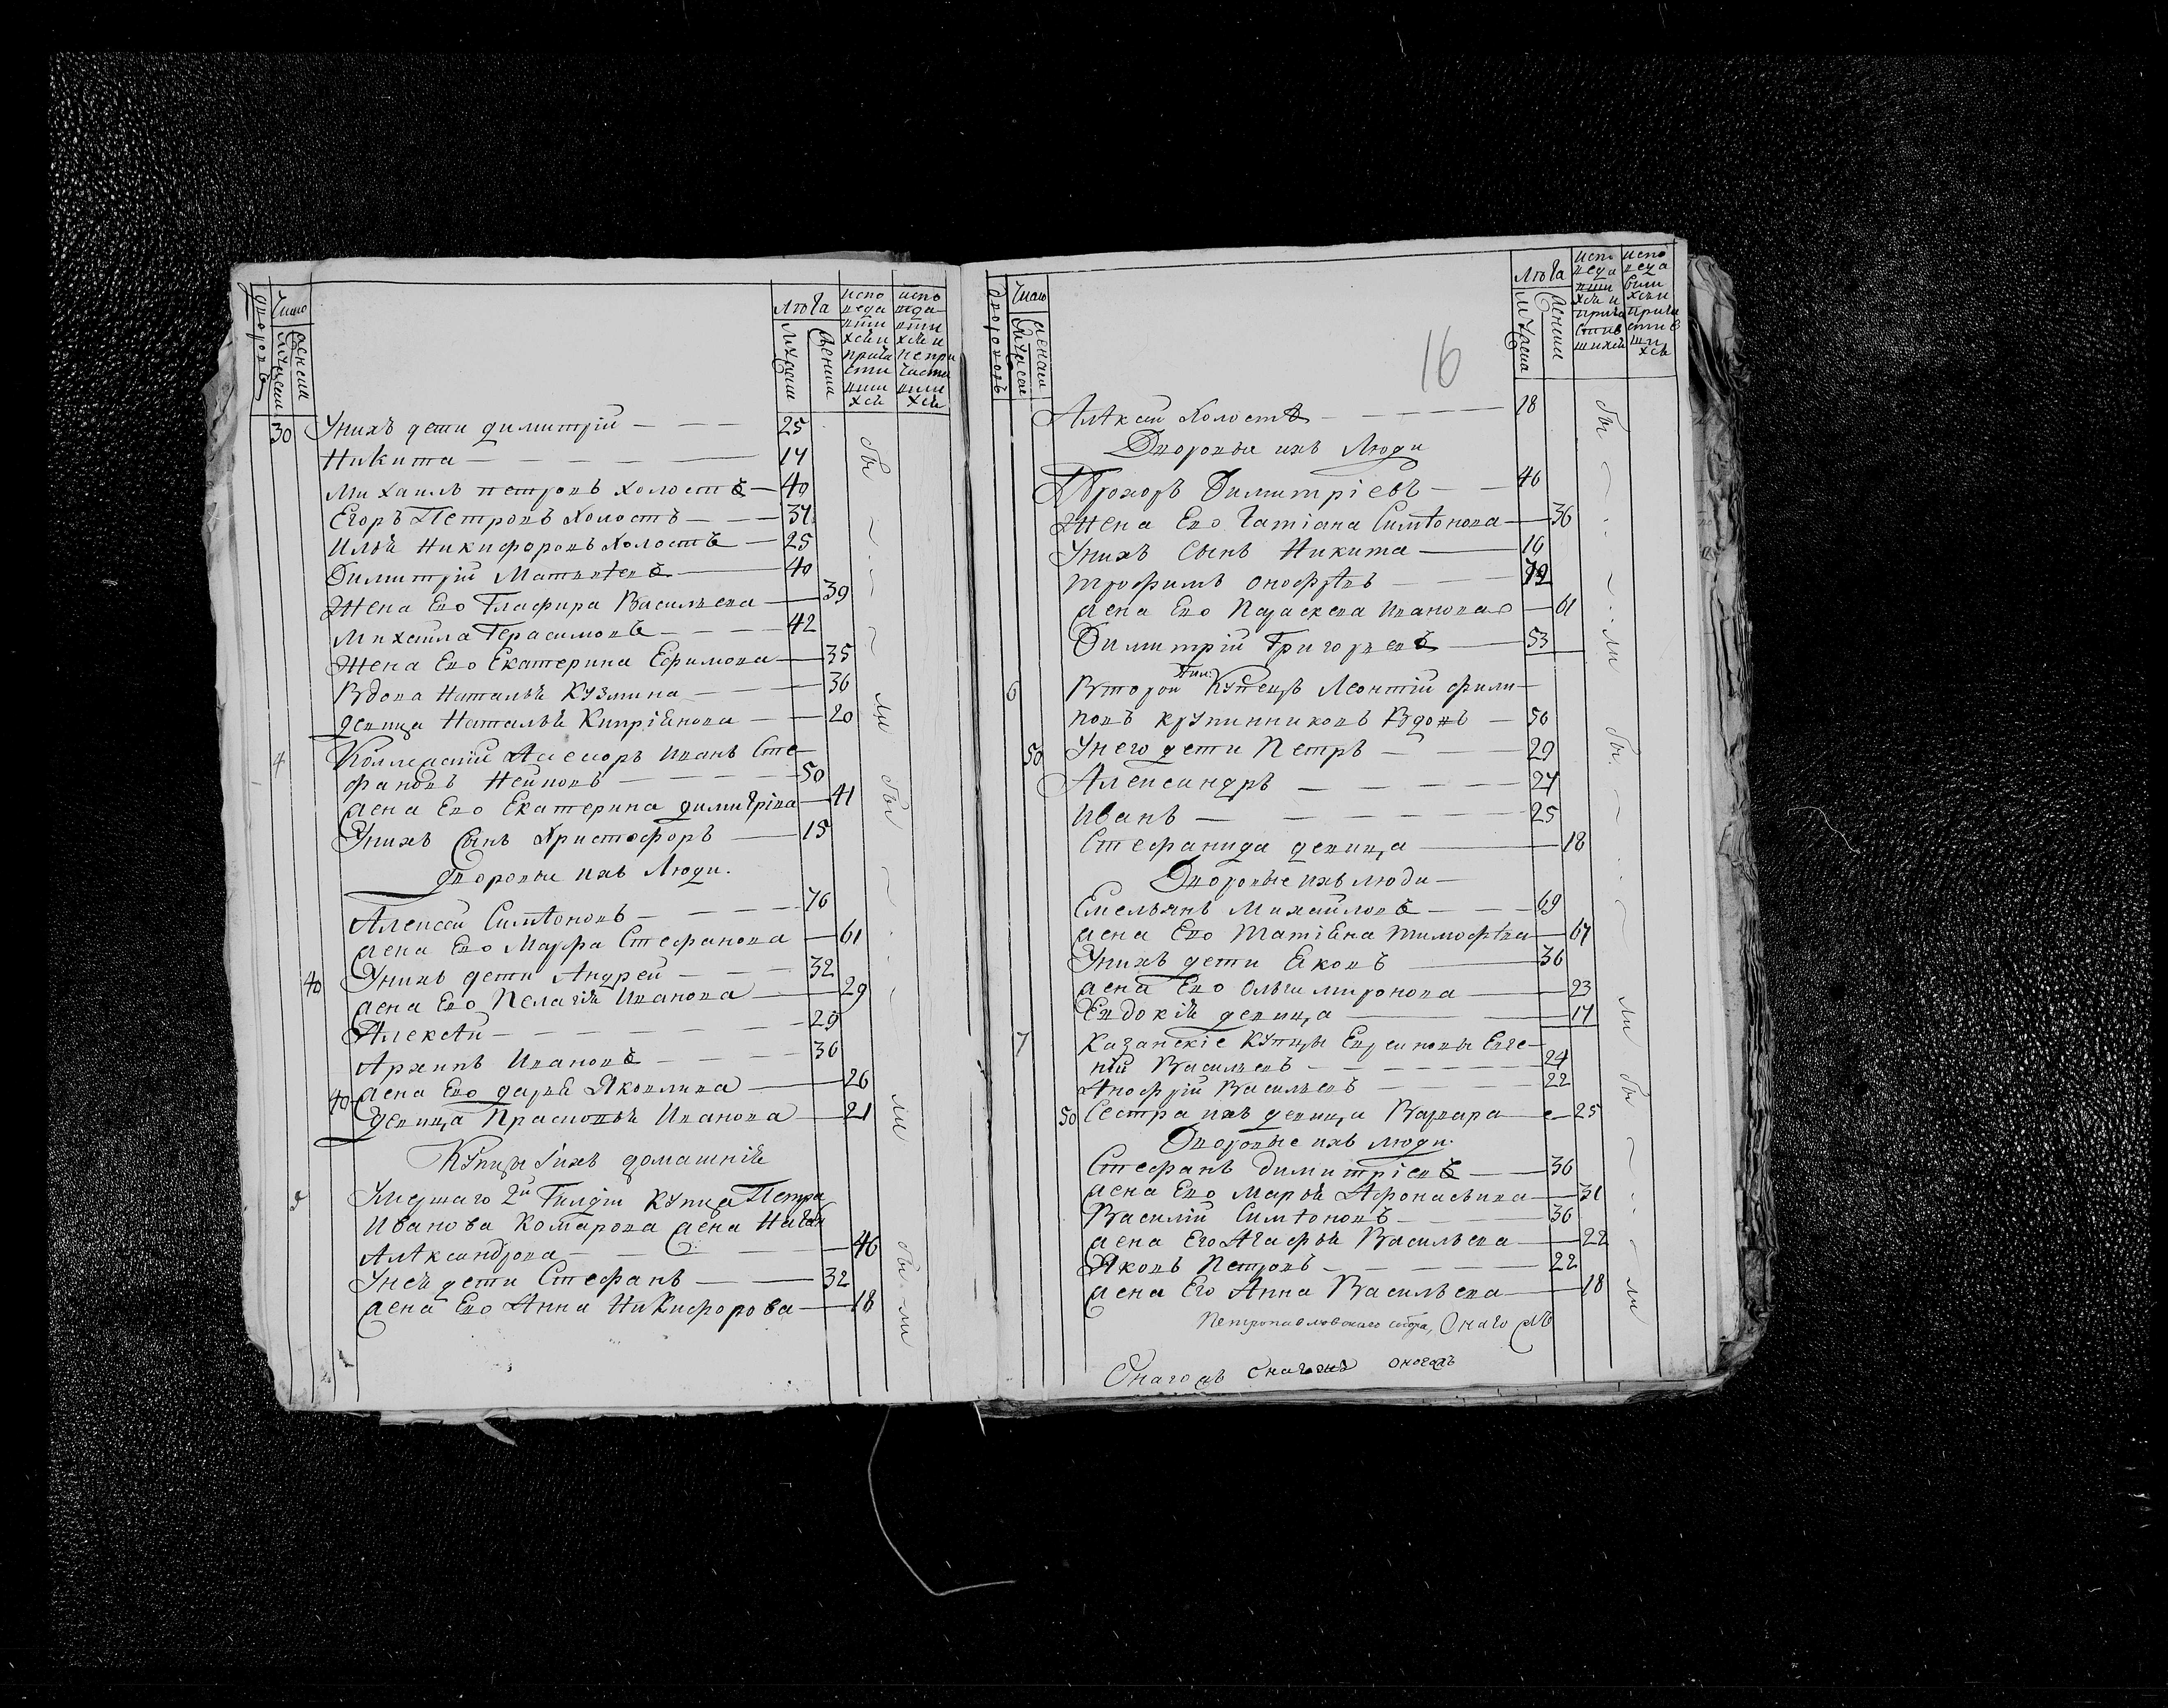 дворовъ
Число
мужеска
женска
лѣта
мужеска
женска
испо
веда
вши
хся и
прича
сти
вши
хся
испо
веда
вши
хся и
непри
части
вши
хся
30 Унихъ дети димитрій 25
Никита 14
Михаилъ петровъ холостъ 40
Егоръ Петровъ холостъ 34
Илья Никифоровъ холостъ 25
Димитрій Матвѣевъ 40
Жена Ево Глафира Васильева 39
Михайла Герасимовъ 42
Жена Ево Екатерина Ефимова 35
Вдова Наталья Кузмина 36
девица Наталья Кипріянова 20
4 Коллежскій Асесоръ Иванъ Сте
фановъ Нейновъ 50
жена Ево Екатерина димитріва 41
Унихъ Сынъ Христофоръ 15
Дворовые ихъ Люди.
Алексей Симѣоновъ 76
жена Ево Марфа Стефанова 61
40 Унихъ дети Андрей 32
жена Ево Пелагія Иванова 29
Алексѣй 29
Архипъ Ивановъ 36
40 жена Ево дарья Яковлива 26
девица Прасковья Иванова 21
Купцы Iихъ домашнія
5 Умершаго 2й Гилдіи купца Петра
Иванова Комарова жена Натал
Алѣксандрова 46
Уней дети Стефанъ 32
жена Ево Анна Никифорова 18
бы ли бы ли бы ли
16
дворовъ
Число
мужеска
женска
лѣта
мужеска
женска
испо
веда
вши
хся и
прича
стив
шихся
испо
веда
вши
хся и
прича
стив
ши
хся
Алѣксай Холостъ 18
Дворовые ихъ Люди
Прохоръ Димитріевъ 46
Жена Ево Татіана Симѣонова 36
Унихъ Сынъ Никита 16
трофимъ онофрѣвъ 72
жена Ево Параскева Иванова 61
Димитрій Григорьевъ 53
Гил:
6 Второй Купецъ Леонтій фили
повъ крупинниковъ Вдовъ 50
50 Унего дети Петръ 29
Александръ 27
Иванъ 25
Стефанида девица 18
Дворовые ихъ люди
Емельянъ Михайловъ 69
жена Ево Татіяна тимофѣва 67
Унихъ дети Яковъ 36
жена Ево Ольга миронова 23
Евдокія девица 17
7 Казанскіе Купцы Евреиновы Евге
ній Васильевъ 24
Анофрій Васильевъ 22
50 Сестра ихъ девица Варвара 25
Дворовые ихъ люди.
Стефанъ димитріевъ 36
жена Ево Марья Афонасьива 31
Василій Симѣоновъ 36
жена Его Агафья Васильева 22
Яковъ Петровъ 22
жена Его Анна Васильева 18
бы ли бы ли бы ли
Петропавловскаго собора, Онаго
Онагожъ онагожъ оногожъ